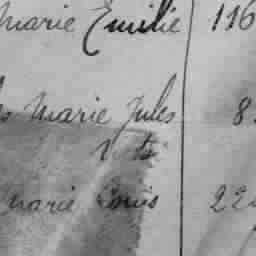 Marie Emilie 116
Marie Jules 8
Marie Louis 22